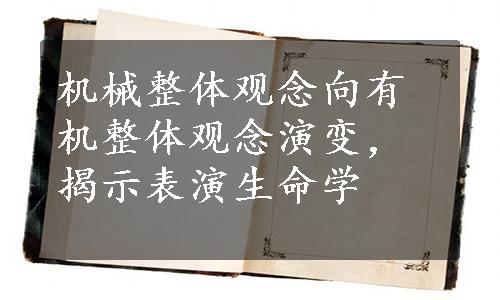 机械整体观念向有
机整体观念演变，
揭示表演生命学